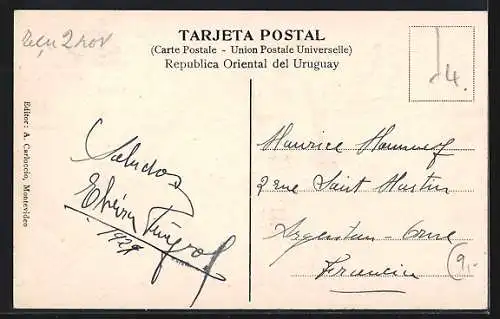 reçu 2 nov
TARJETA POSTAL
(Carte Postale - Union Postale Universelle)
Republica Oriental del Uruguay
4.
Editor: A. Carluccio, Montevideo
Saludos
1929
Maurice
2 rue Saint Martin
Argentan - Orne
Francia
9,-